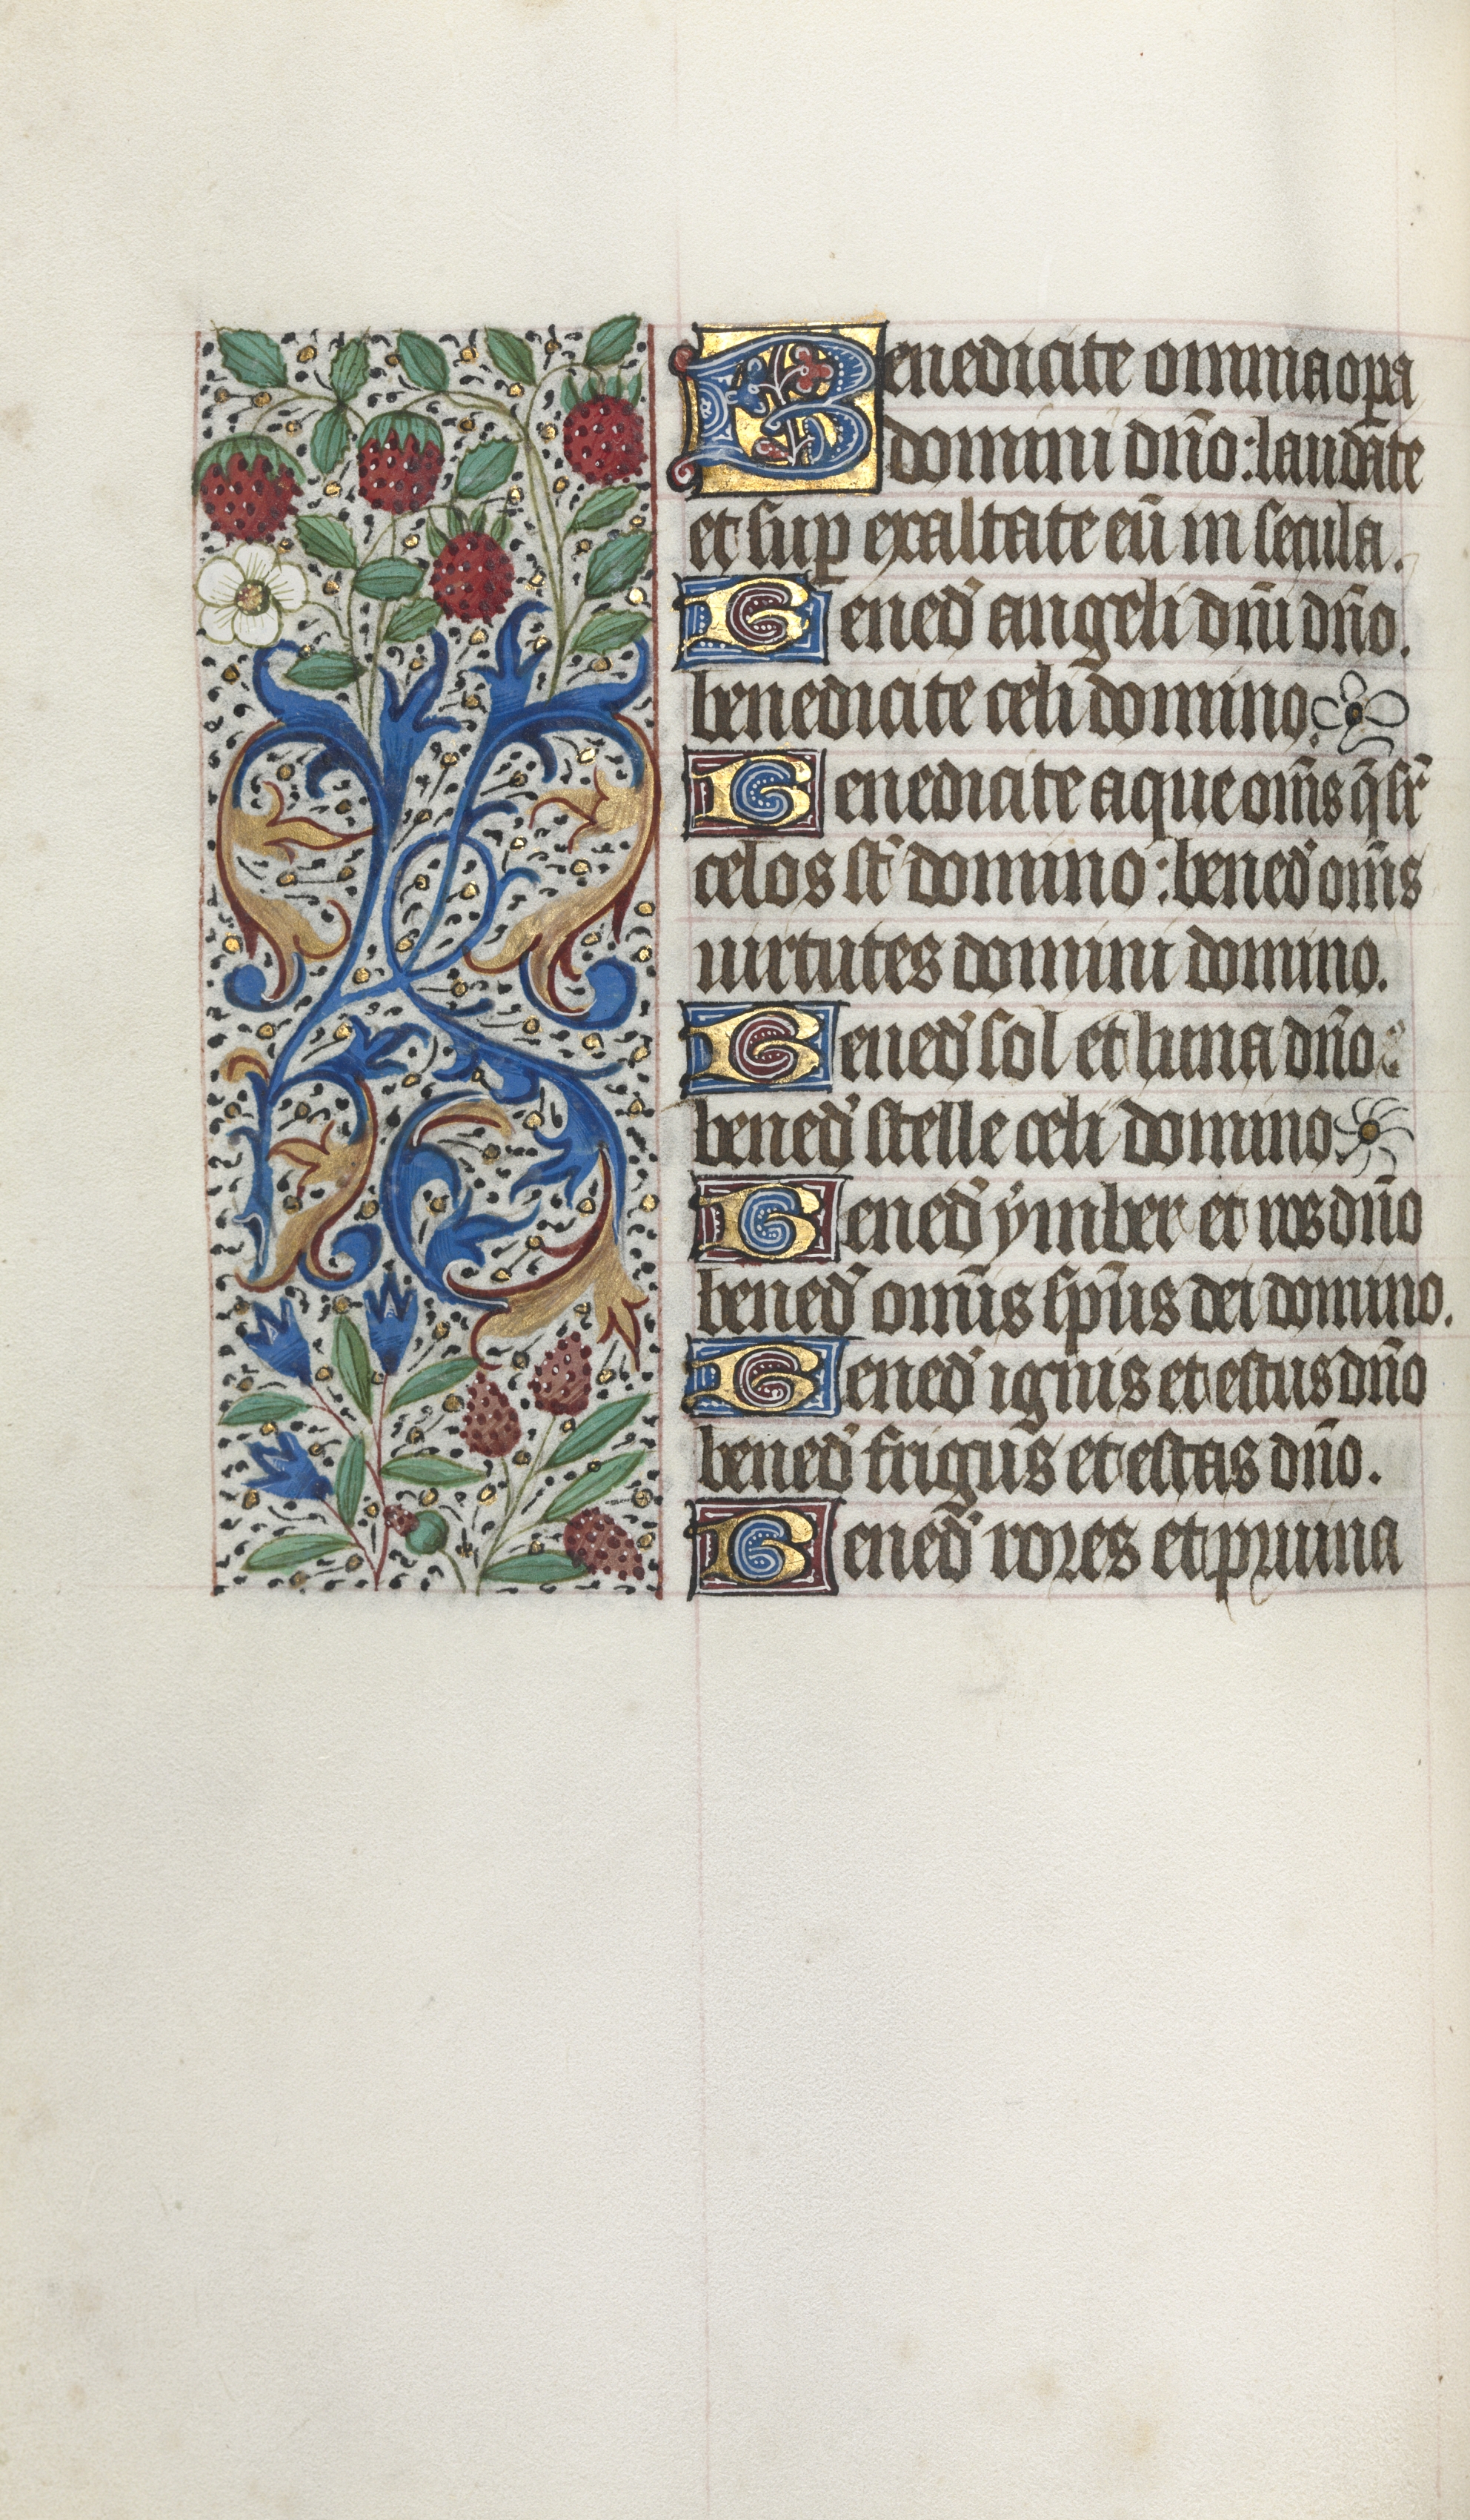 Benedicite omnia opa
domini dño: laudate
et sup exaltate eū in secula.
Bened̕ angeli dñi dño.
benedicite celi domino.
Benedicite aque om̄s q̄ sr̄
celos st̄ domino: bened̕ om̄s
uirtutes domini domino.
Bened̕ sol et luna dño
bened̕ stelle celi domino.
Bened̕ ymber et ros dño
bened̕ omīs sp̄us dei domino.
Bened̕ ignis et estus dño
bened̕ frigus et estas dño.
Bened̕ rores et pruina